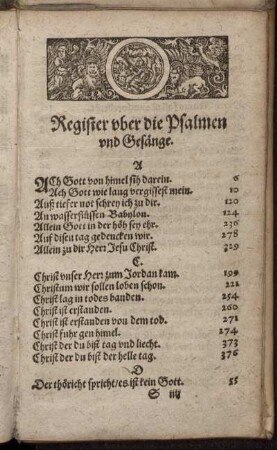 Register vber die Psalmen
vnd Gesänge.
A
ACh Gott von himel sih darein. 6
Ach Gott wie lang vergissest mein. 10
Auß tiefer not schrey ich zu dir. 120
An wasserflüssen Babylon. 124
Allein Gott in der höh sey ehr. 236
Auf disen tag gedencken wir. 278
Allein zu dir Herr Jesu Christ. 329
C.
Christ vnser Herr zum Jordan kam. 199
Christum wir sollen loben schon. 221
Christ lag in todes banden. 254
Christ ist erstanden. 260
Christ ist erstanden von dem tod. 271
Christ fuhr gen himel. 274
Christ der du bist tag vnd liecht. 373
Christ der du bist der helle tag. 376
D
Der thöricht spricht/es ist kein Gott. 55
S iiij